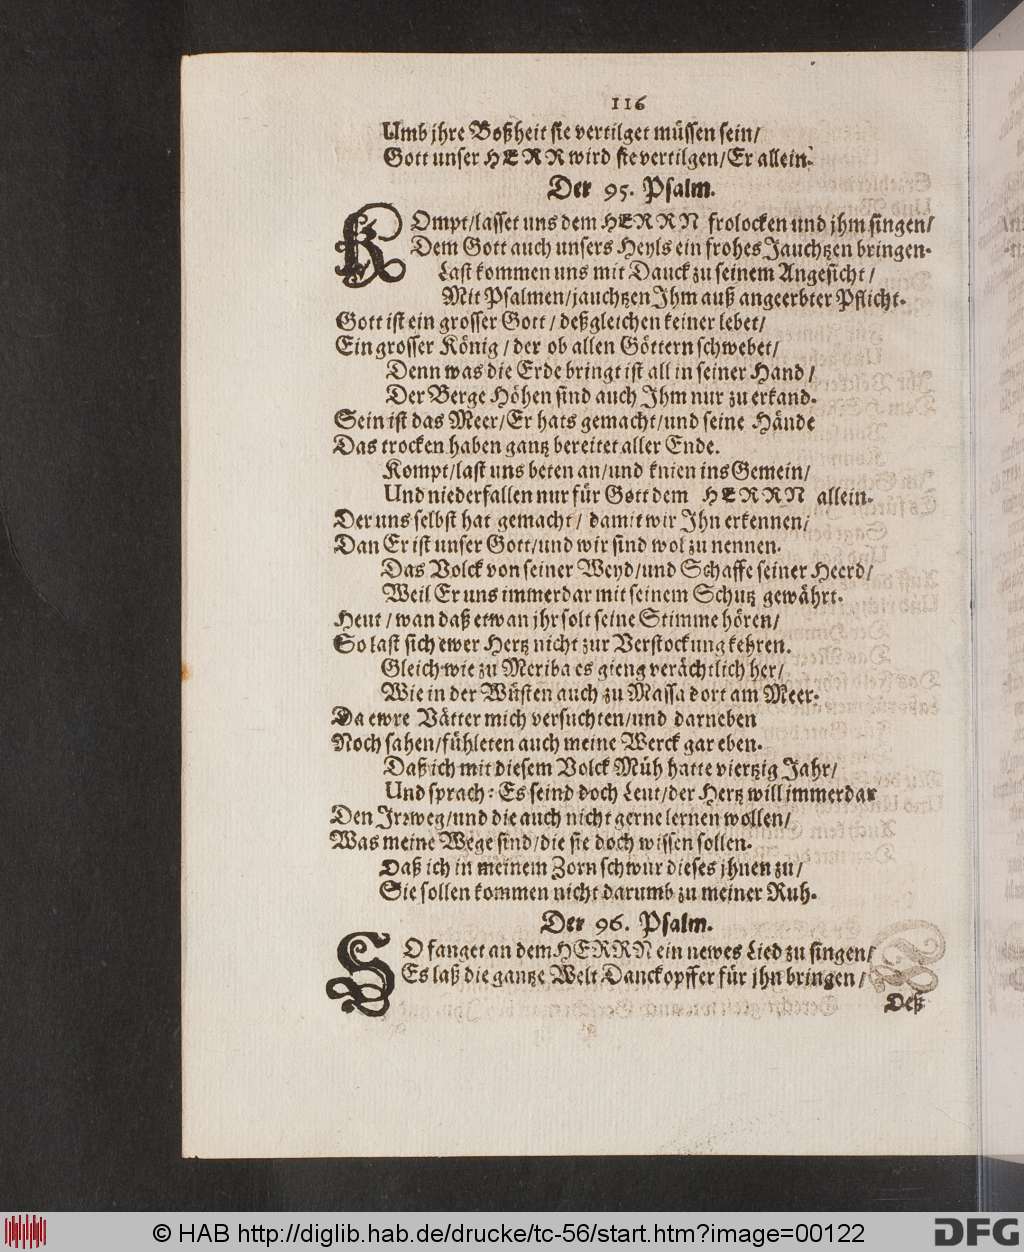 116
Umb jhre Boßheit sie vertilget müssen sein/
Gott unser HERR wird sie vertilgen/Er allein.
Der 95. Psalm.
KOmpt/lasset uns dem HERRN frolocken und jhm singen/
Dem Gott auch unsers Heyls ein frohes Jauchtzen bringen.
Last kommen uns mit Danck zu seinem Angesicht/
Mit Psalmen/jauchtzen Ihm auß angeerbter Pflicht.
Gott ist ein grosser Gott/deßgleichen keiner lebet/
Ein grosser König/der ob allen Göttern schwebet/
Denn was die Erde bringt ist all in seiner Hand/
Der Berge Höhen sind auch Ihm nur zu erkand.
Sein ist das Meer/Er hats gemacht/und seine Hände
Das trocken haben gantz bereitet aller Ende.
Kompt/last uns beten an/und knien ins Gemein/
Und niederfallen nur für Gott dem HERRN allein.
Der uns selbst hat gemacht/damit wir Ihn erkennen/
Dan Er ist unser Gott/und wir sind wol zu nennen.
Das Volck von seiner Weyd/und Schaffe seiner Heerd/
Weil Er uns immerdar mit seinem Schutz gewährt.
Heut/wan daß etwan jhr solt seine Stimme hören/
So last sich ewer Hertz nicht zur Verstockung kehren.
Gleich wie zu Meriba es gieng verächtlich her/
Wie in der Wüsten auch zu Massa dort am Meer.
Da ewre Vätter mich versuchten/und darneben
Noch sahen/fühleten auch meine Werck gar eben.
Daß ich mit diesem Volck Müh hatte viertzig Jahr/
Und sprach: Es seind doch Leut/der Hertz will immerdar
Den Irrweg/und die auch nicht gerne lernen wollen/
Was meine Wege sind/die sie doch wissen sollen.
Daß ich in meinem Zorn schwur dieses jhnen zu/
Sie sollen kommen nicht darumb zu meiner Ruh.
Der 96. Psalm.
SO fanget an dem HERRN ein newes Lied zu singen/
Es laß die gantze Welt Danckopffer für jhn bringen/
Deß
© HAB http://diglib.hab.de/drucke/tc-56/start.htm?image=00122
DFG